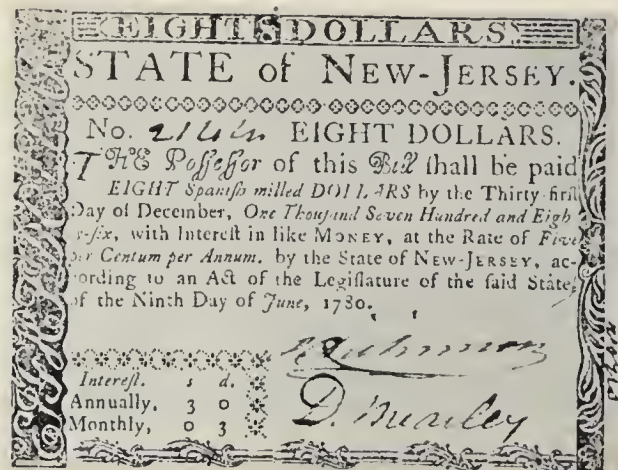 EIGHT DOLLARS
STATE of NEW-JERSEY.
No. EIGHT DOLLARS.
THE Poſſeſſor of this Bill ſhall be paid
EIGHT Spaniſh milled DOLLARS by the Thirty-firſt
Day of December, One Thouſand Seven Hundred and Eigh
ty-ſix, with Intereſt in like MONEY, at the Rate of Five
per Centum per Annum. by the State of NEW-JERSEY, ac-
cording to an Act of the Legiſlature of the ſaid State,
of the Ninth Day of June, 1780.
Intereſt. s d.
Annually, 3 0
Monthly, 0 3
D. Brearley